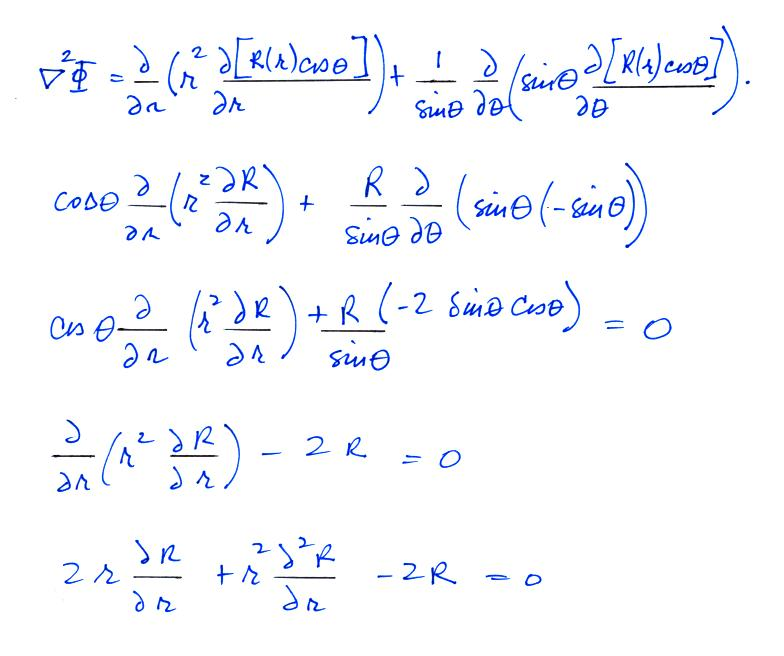 ∇²Φ = ∂/∂r (r² ∂[R(r)cosθ]/∂r) + 1/sinθ ∂/∂θ (sinθ ∂[R(r)cosθ]/∂θ).
cosθ ∂/∂r (r² ∂R/∂r) + R/sinθ ∂/∂θ (sinθ(-sinθ))
cosθ ∂/∂r (r² ∂R/∂r) + R/sinθ (-2 sinθ cosθ) = 0
∂/∂r (r² ∂R/∂r) - 2R = 0
2r ∂R/∂r + r² ∂²R/∂r - 2R = 0